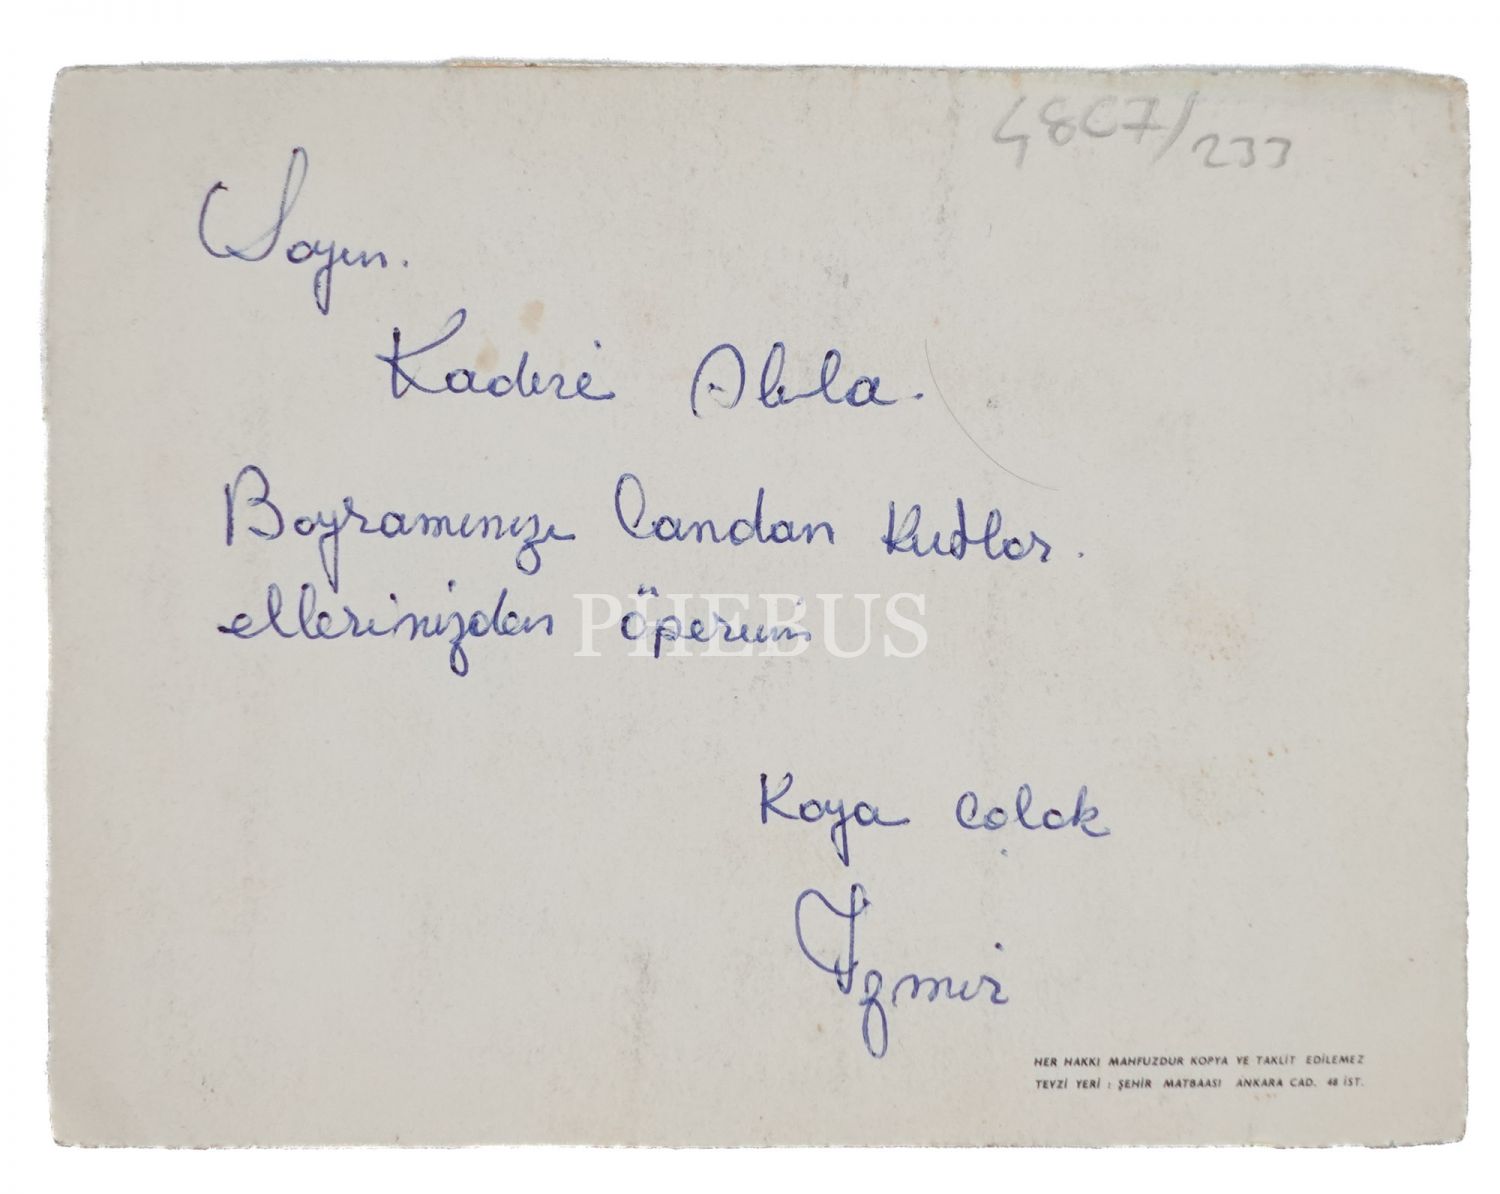 48C7/233
Sayın.
Kadiré Abla.
Bayramınızı Candan Kutlar.
ellerinizden öperim
PHEBUS
Kaya Çolak
İzmir
HER HAKKI MAHFUZDUR KOPYA VE TAKLİT EDİLEMEZ
TEVZİ YERİ : ŞEHİR MATBAASI ANKARA CAD. 48 İST.